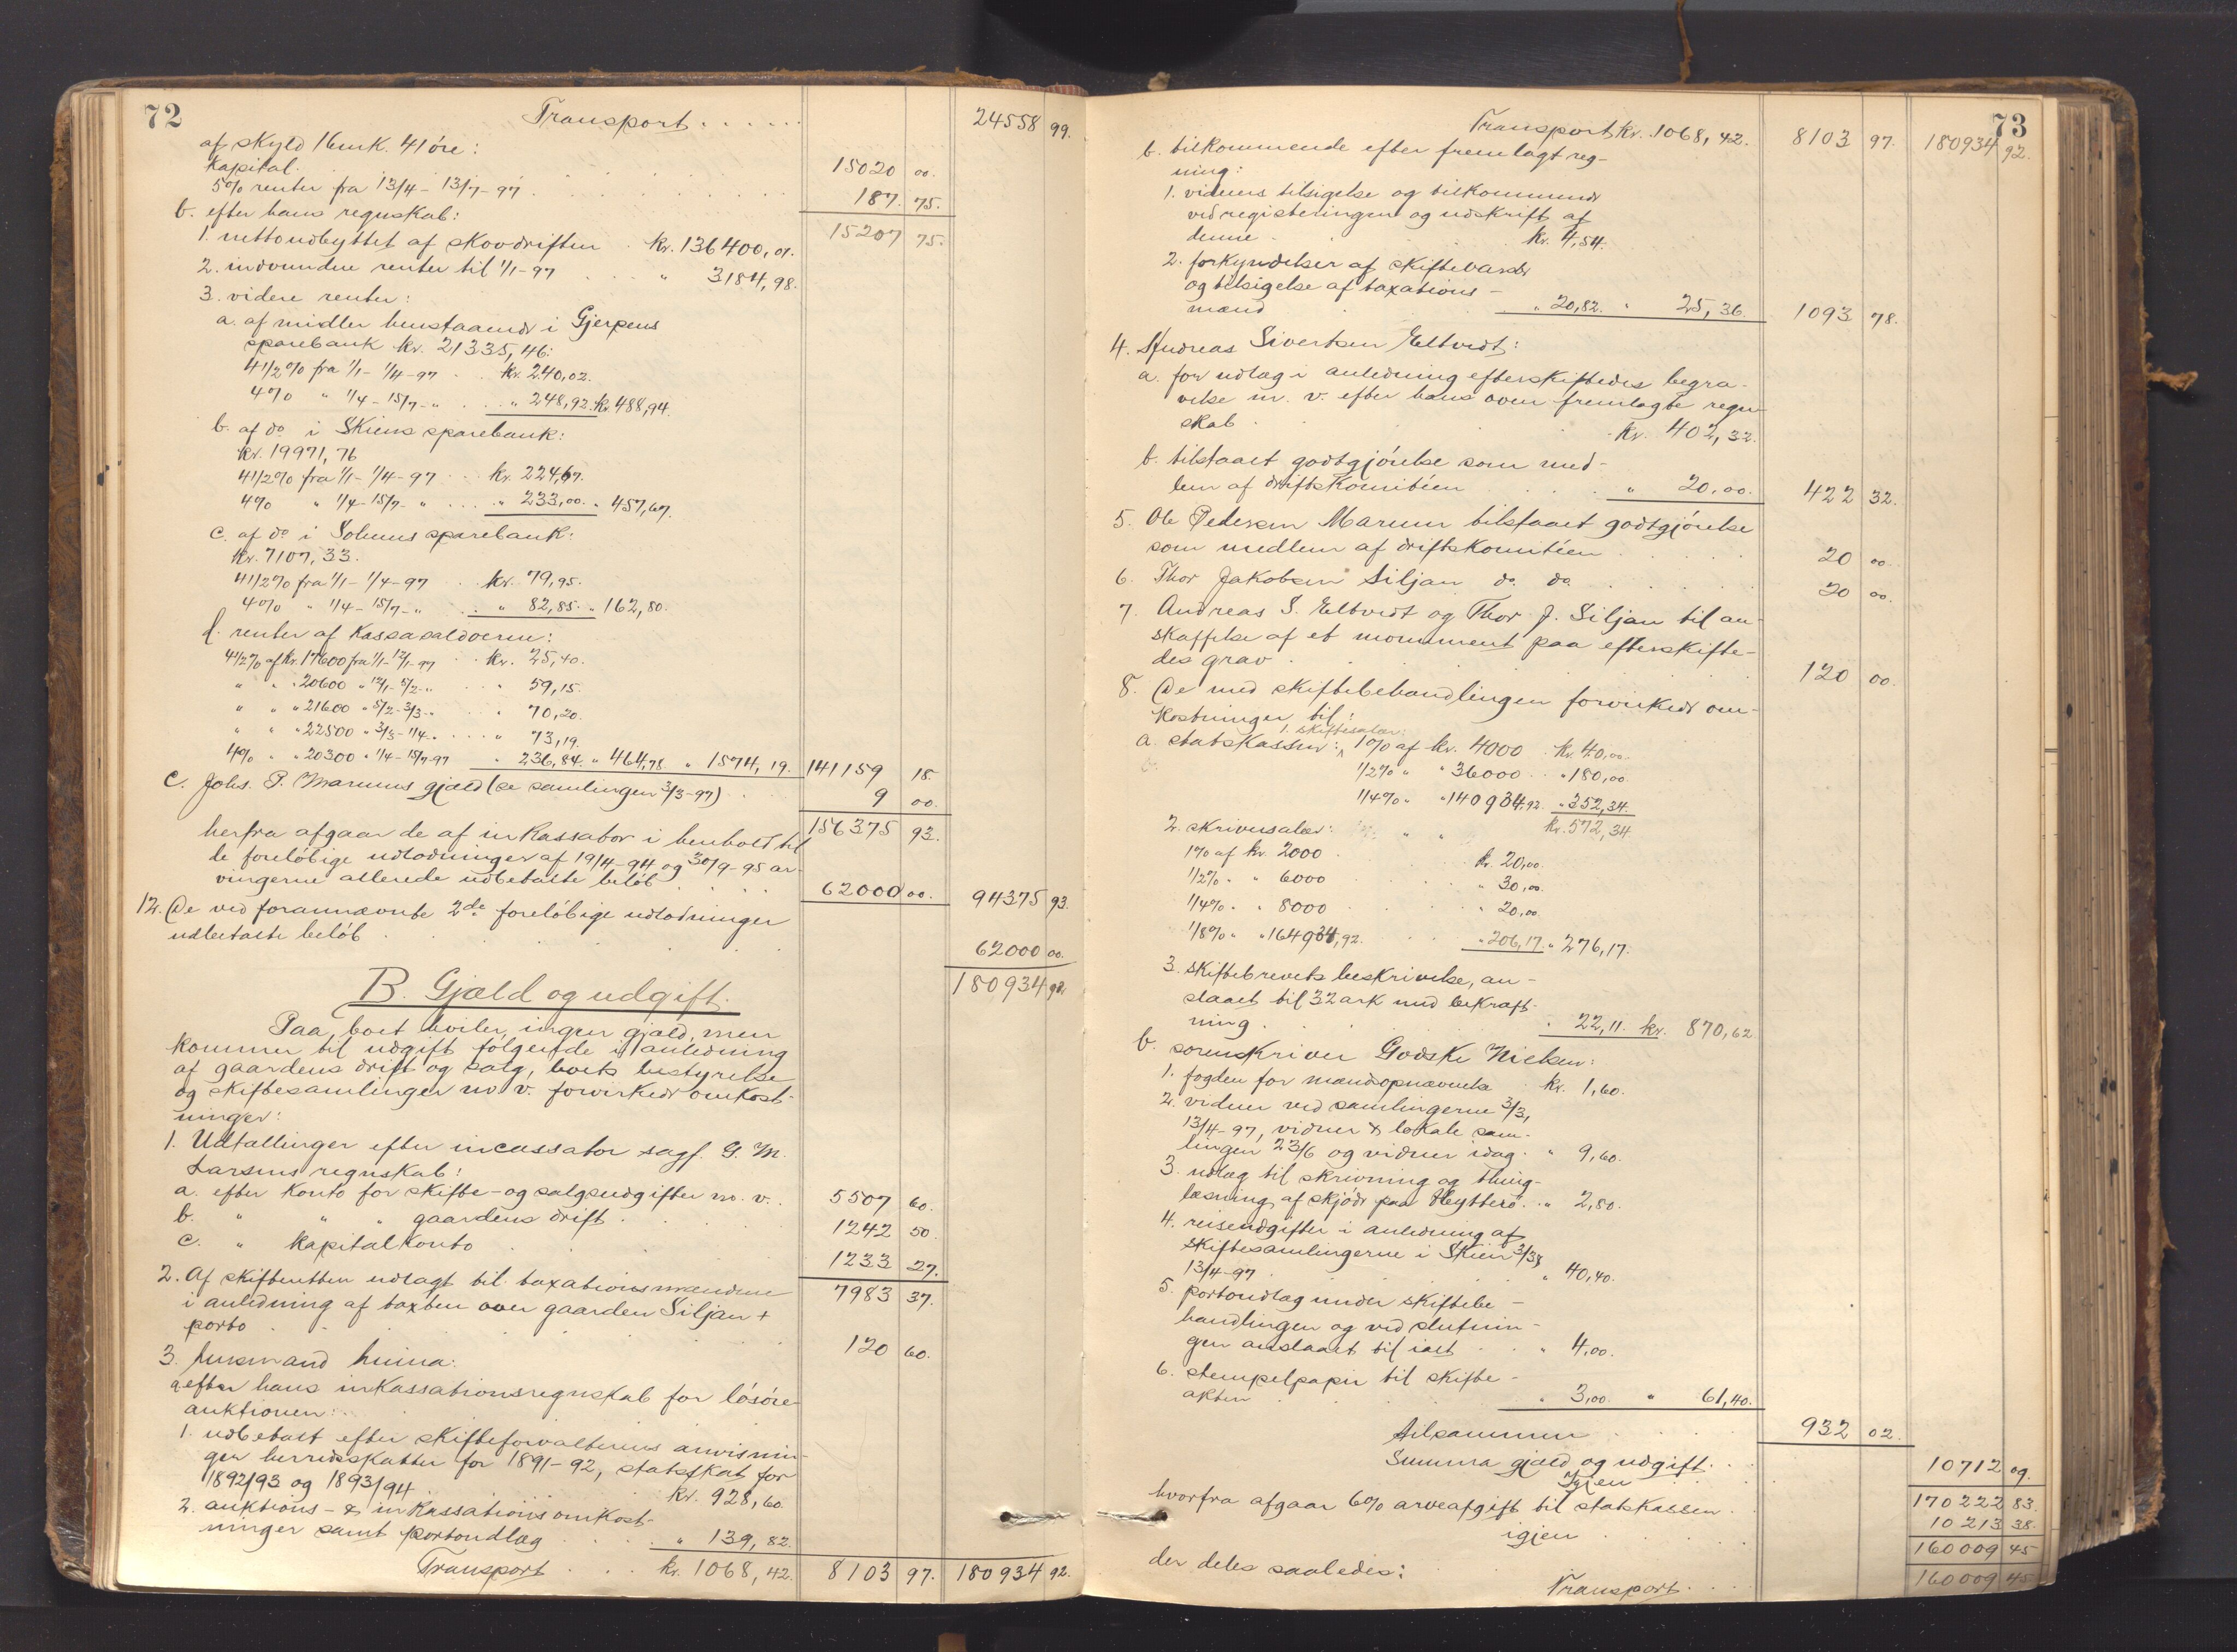 72
Transport . . . . . . 24558 99.
af skyld 16 mk. 41 øre:
Kapital . . . 15020 00.
5% renter fra 13/4 - 13/7 - 97 . . . 187. 75.
15207 75.
b. efter hans regnskab:
1. nettoudbyttet af skovdriften . kr. 136400,01.
2. indvundne renter til 1/1 - 97 . . " 3184,98.
3. videre renter:
a. af midler henstaaende i Gjerpens
sparebank kr. 21335,46:
4 1/2 % fra 1/1 - 1/4 - 97 . . kr. 240,02.
4% " 1/4 - 15/7 - " . . " 248,92. kr. 488,94.
b. af do i Skiens sparebank:
kr. 19971,76
4 1/2 % fra 1/1 - 1/4 - 97 . . kr. 224,67.
4% " 1/4 - 15/7 - " . . . " 233,00. " 457,67.
c. af do i Solums sparebank:
kr. 7107,33.
4 1/2 % fra 1/1 - 1/4 - 97 . . kr. 79,95.
4% " 1/4 - 15/7 - " . . " 82,85. " 162,80.
d. renter af kassasaldoerne:
4 1/2 % af kr. 17600 fra 1/1 - 12/1 - 97 . . kr. 25,40.
" " " 20600 " 12/1 - 5/2 - " . . " 59,15.
" " " 21600 " 5/2 - 3/3 - " . " 70,20.
" " " 22500 " 3/3 - 1/4 - " . . . " 73,19.
4% " " 20300 " 1/4 - 15/7 - 97 " 236,84. " 464,78. " 1574,19. 141159 18.
c. Johs. P. Marums gjæld (se samlingen 3/3 - 97) . . 9 00.
156375 93.
herfra afgaar de af inkassator i henhold til
de foreløbige udlodninger af 19/4 - 94 og 30/9 - 95 ar-
vingerne allerede udbetalte beløb . . . . 62000 00. 94375 93.
12. De ved forannævnte 2de foreløbige udlodninger
udbetalte beløb . . . 62000 00.
180934 92.
B. Gjæld og udgift.
Paa boet hviler ingen gjæld, men
kommer til udgift følgende i anledning
af gaardens drift og salg, boets bestyrelse
og skiftesamlinger m. v. forvirkede omkost-
ninger:
1. Udtællinger efter incassator sagf. G. M.
Larsens regnskab:
a. efter konto for skifte- og salgsudgifter m. v. . 5507 60.
b. " " " gaardens drift . . . 1242 50.
c. " kapitalkonto . . . 1233 27.
7983 37.
2. Af skifteretten udlagt til taxationsmændene
i anledning af taxten over gaarden Siljan +
porto . . . 120 60.
3. lensmand
a. efter hans inkassationsregnskab for løsøre-
auktionen:
1. udbetalt efter skifteforvalterens anvisnin-
gen herredsskatter for 1891-92, statsskat for
1892/93 og 1893/94 . . . kr. 928,60.
2. auktions- & inkassationsomkost-
ninger samt portoudlæg . . . " 139,82.
Transport . . . kr. 1068,42. 8103 97. 180934 92.
73
Transport kr. 1068,42. 8103 97. 180934 92.
b. tilkommende efter fremlagt reg-
ning:
1. vidners tilsigelse og tilkommende
ved registeringen og udskrift af
denne . . . kr. 4,54.
2. forkyndelser af skiftevarsler
og tilsigelse af taxations-
mænd . . . " 20,82. " 25,36. 1093 78.
4. Andreas Sivertsen Eltvedt:
a. for udlæg i anledning efterskiftedes begra-
velse m. v. efter hans oven fremlagte regn-
skab . . . kr. 402,32.
b. tilstaaet godtgjørelse som med-
lem af driftskomitéen . . . " 20,00. 422 32.
5. Ole Pedersen Marum tilstaaet godtgjørelse
som medlem af driftskomitéen . . . 20 00.
6. Thor Jakobsen Siljan do do . . . 20 00.
7. Andreas S. Eltvedt og Thor J. Siljan til an-
skaffelse af et monument paa efterskifte-
des grav . . . 120 00.
8. De med skiftebehandlingen forvirkede om-
kostninger til:
1. skiftesalær:
a. statskassen: 1% af kr. 4000 . kr. 40,00.
1/2 % " " 36000 . . " 180,00
1/4 % " " 140934,92. " 352,34.
kr. 572,34.
2. skriversalær:
1% af kr. 2000 . . . kr. 20,00.
1/2 % " " 6000 . . . " 30,00.
1/4 % " " 8000 . . . " 20,00.
1/8 % " " 164934,92. . . " 206,17. " 276,17.
3. skiftebrevets beskrivelse, an-
slaaet til 32 ark med bekræft-
ning . . . " 22,11. kr. 870,62
b. sorenskriver Godske Nielsen:
1. fogden for mændsopnævnelse . kr. 1,60.
2. vidner ved samlingerne 3/3,
13/4 - 97, vidner & lokale sam-
lingen 23/6 og vidner idag. " 9,60.
3. udlæg til skrivning og thing-
læsning af skjøde paa Heytterø . " 2,80.
4. reiseudgifter i anledning af
skiftesamlingerne i Skien 3/3 &
13/4 - 97 . . . " 40,40.
5. portoudlæg under skiftebe-
handlingen og ved slutnin-
gen anslaaet til ialt . . " 4,00.
6. stempelpapir til skifte-
akten . . . " 3,00. " 61,40.
tilsammen . . . 932 02.
Summa gjæld og udgift . . 10712 09.
Igjen . . . 170222 83.
hvorfra afgaar 6% arveafgift til statskassen . . 10213 38.
igjen . . . 160009 45
der deles saaledes:
Transport . . . 160009 45